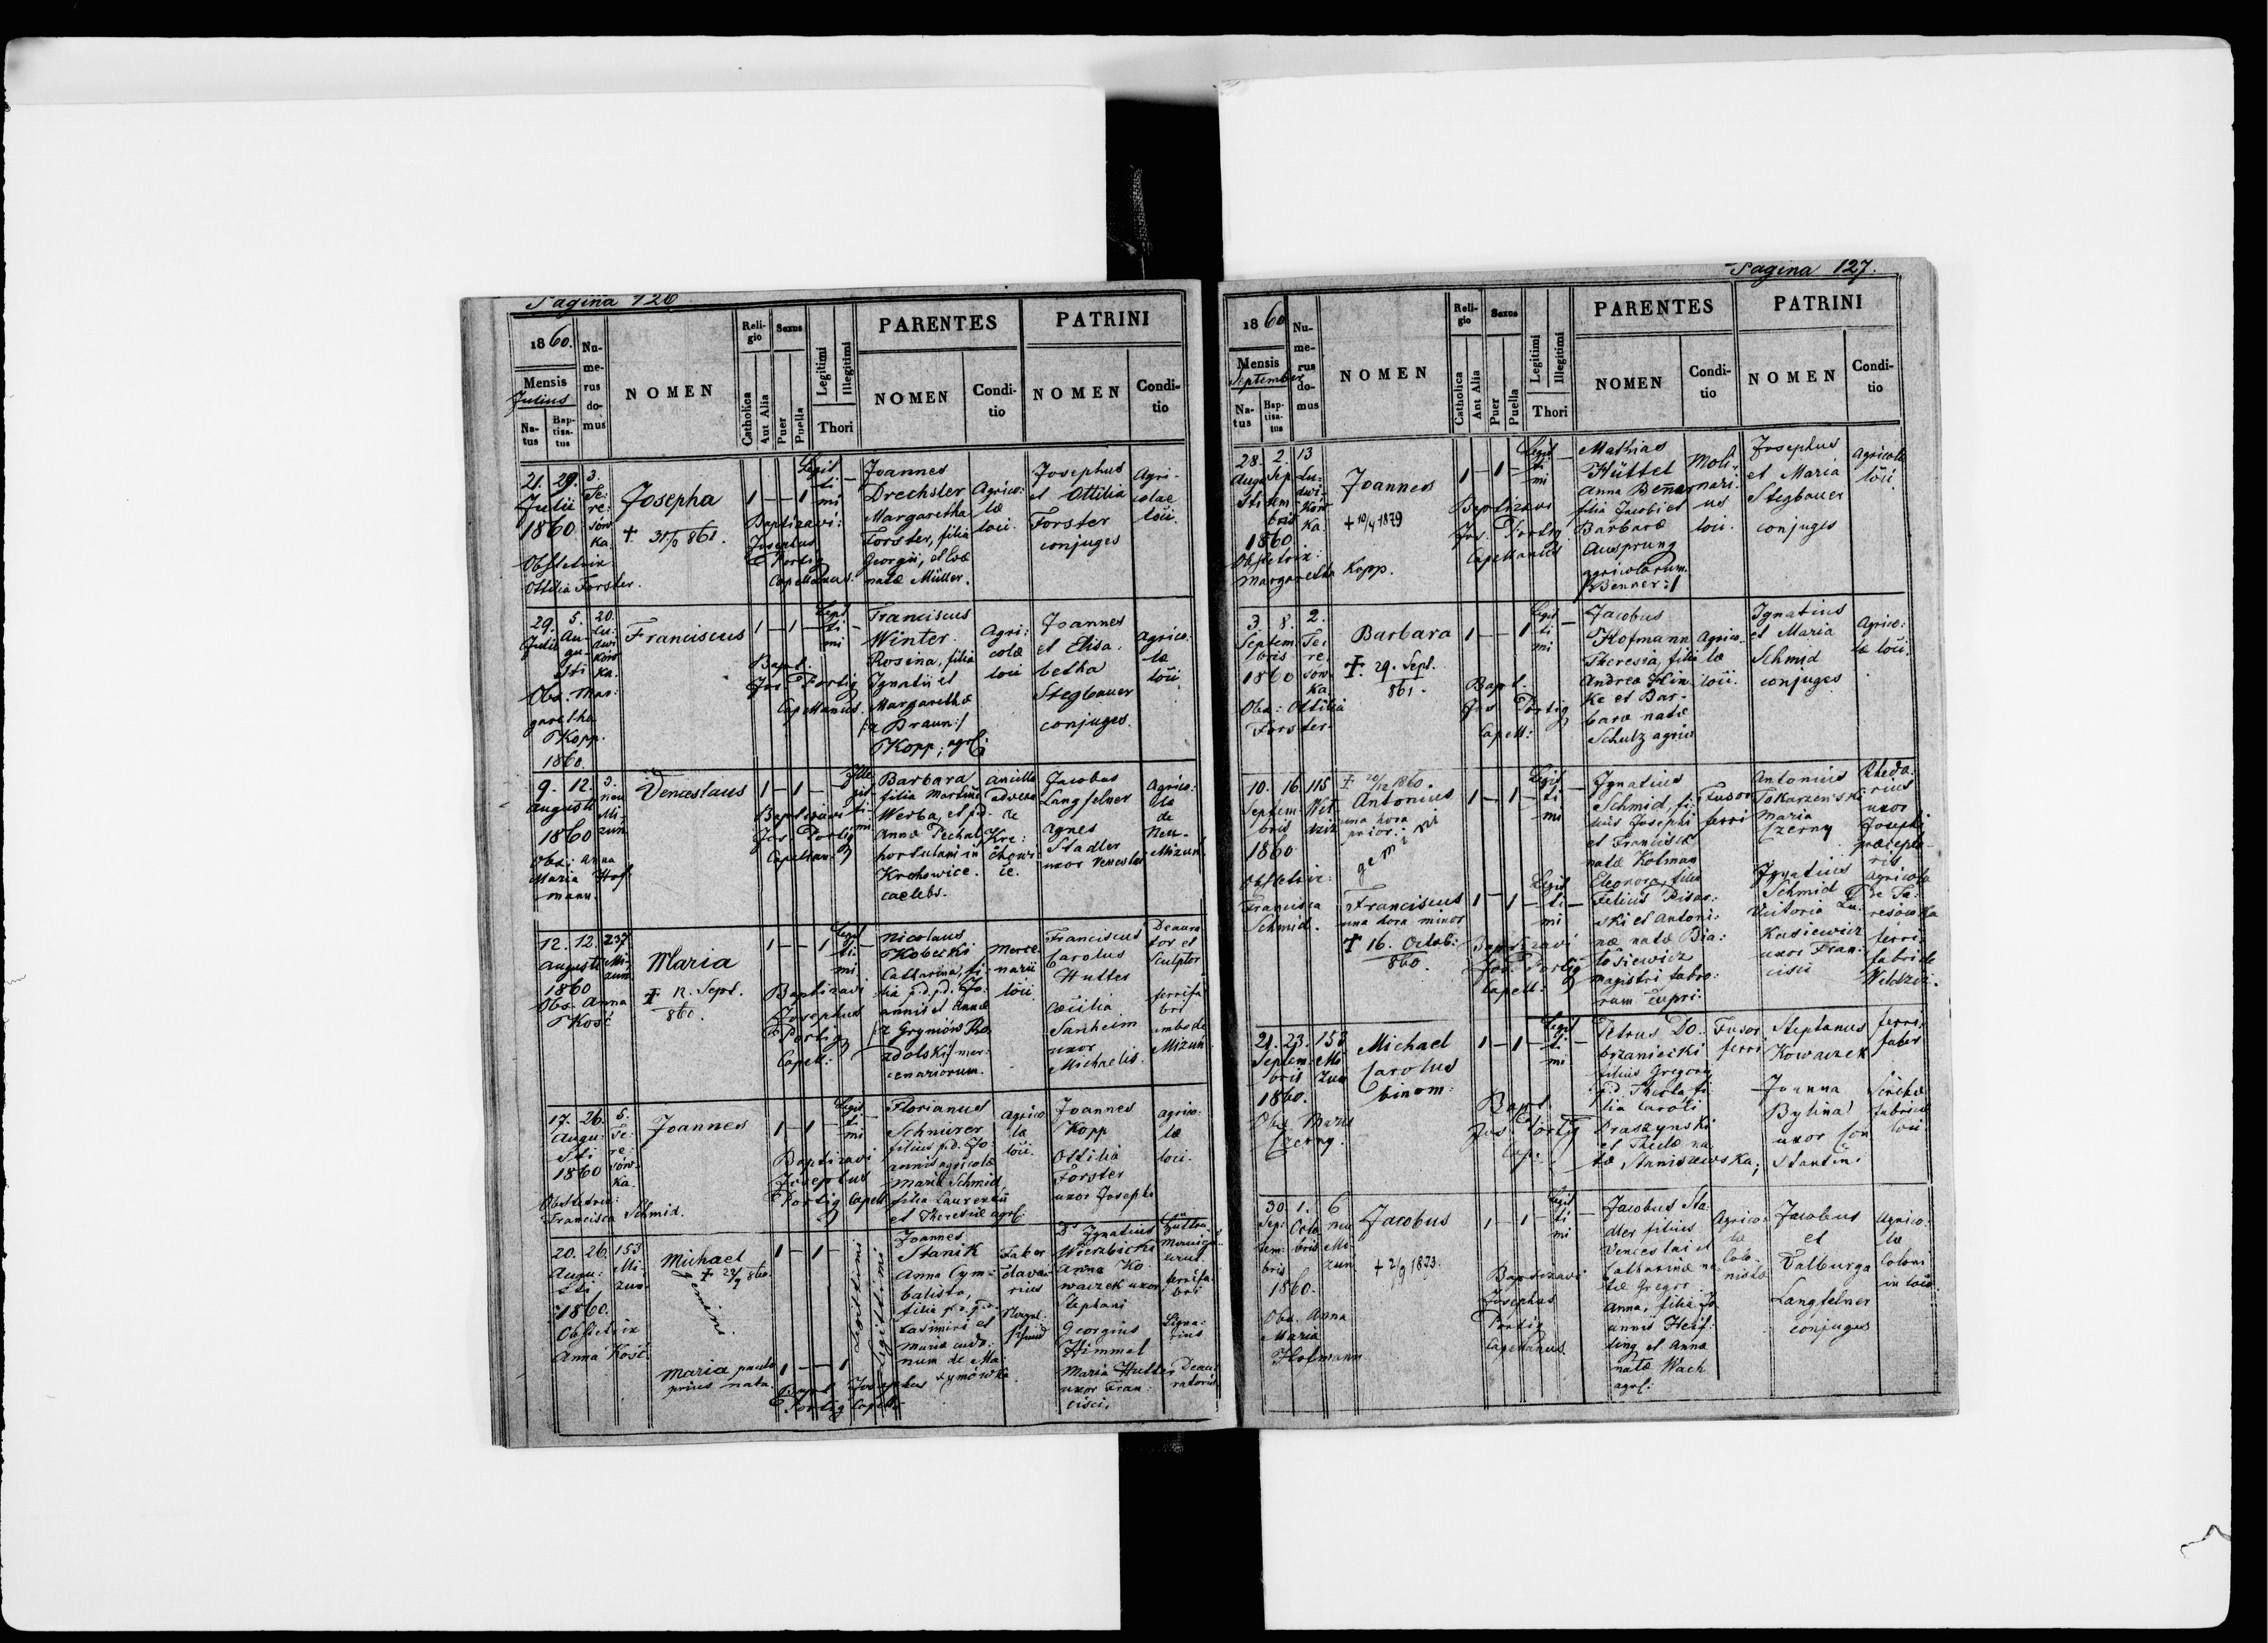 Pagina 126
1860.
Mensis
Julius
Natus
Baptisatus
Numerus domus
NOMEN
Religio
Catholica
Aut Alia
Sexus
Puer
Puella
Legitimi
Illegitimi
Thori
PARENTES
NOMEN
Conditio
PATRINI
NOMEN
Conditio
21. 29. 3.
Julii Te:
1860. re:
sów
ka.
Obstetrix
Ottilia Forster.
Josepha
Baptizavi:
Josephus
Portig
Capellanus.
Legit
ti
mi
Joannes
Drechsler
Margaretha
Forster, filia
Georgii, et Evæ
natæ Müller.
Agrico:
læ
loci.
Josephus
et Ottilia
Forster
conjuges
Agri-
colae
loci.
29. 5. 20.
Julii Au- Lu:
gu- dwi
sti kow
ka.
Obs. Mar:
garetha
Kopp.
1860.
Franciscus
Bapt.
Jos. Portig
Capellanus.
Legit
ti
mi
Franciscus
Winter.
Rosina, filia
Ignatii et
Margarethæ
/:a Braun:/
Kopp; agr:
Agri:
colæ
loci
Joannes
et Elisa-
betha
Stegbauer
conjuges.
Agrico:
læ
loci
9. 12. 3.
Augusti neu
1860 Mi-
zun
Obs: Anna
Maria Hof-
mann.
Venceslaus
Baptizavi
Jos. Portig
Capellan:
Barbara
filia Martini
Werba, et p.d.
Annæ Pechal
hortulani in
Krchowice.
caelebs.
ancilla
Jacobus
Langfelner
Agnes
Stadler
uxor Venceslai
Agrico:
la
de
Neu-
Mizun.
12. 12. 237
Augusti Mi-
1860 zun
Obs. Anna
Kość
Maria
† 12. Sept.
860.
Baptizavi
Josephus
Portig
Capell:
Legit
ti
mi
Nicolaus
Kobecki
Catharina, fi-
lia p.d. p.d. Jo:
annis et Annæ
zdolski/ mer:
cenariorum.
Merce-
narii
loci.
Franciscus
Carolus
Hutter
Cæcilia
Sanheim
uxor
Michaelis.
Deaura
tor et
Sculptor
ferrifa
bri
ambo de
Mizun
17. 26. 5.
Augu: Te:
sti re:
1860 sów
ka.
Obstetrix:
Francisca Schmid.
Joannes
Baptizavi
Josephus
Portig Capell
Legit
ti
mi
Florianus
Schnürer
filius p.d. Jo-
annis agricolæ
Maria Schmid,
filia Laurentii
et Theresiæ agr:
Agrico
læ
loci.
Joannes
Kopp
Ottilia
Forster
uxor Josephi
agrico:
læ
loci.
20. 26. 153
Augu: Mi-
sti zun
1860.
Obstetrix
Anna Kość.
Michael
gemini
Maria paulo
prius nata.
Bapt. Josephus
Portig Capell:
Legitimi
Legitimi
Joannes
Stanik
Anna Cym-
balista,
filia p.d. p.d.
Casimiri et
Mariæ
Faber
clava-
rius
Dˢ Ignatius
Wierzbicki
Anna Ko
waczek uxor
Stephani
Georgius
Himmel
Maria Hutter
uxor Fran:
cisci,
ferrifa-
bri
Ligna-
rius
Deau
ratoris
Pagina 127.
1860
Mensis
September
Natus
Baptisatus
Numerus domus
NOMEN
Religio
Catholica
Aut Alia
Sexus
Puer
Puella
Legitimi
Illegitimi
Thori
PARENTES
NOMEN
Conditio
PATRINI
NOMEN
Conditio
28. 2. 13
Augu Sep Lu-
sti tem- dwi-
bris Ków
1860 ka.
Obstetrix:
Margaretha Kopp.
Joannes
+ 10/4 1879
Baptizavi
Jos. Portig
Capellanus
Legit
ti
mi
Mathias
Hüttel
Anna Benner
filia Jacobi et
Barbaræ
Aussprung
agricolarum.
/Benner:/
Moli-
nari-
us
loci.
Josephus
et Maria
Stegbauer
conjuges
Agricolæ
loci.
3. 8. 2.
Septem- Te:
bris re.
1860 sów
ka.
Obs: Ottilia
Forster.
Barbara
† 29. Sept.
861.
Bapt.
Jos Portig
Capell:
Legit
ti
mi
Jacobus
Hofmann
Theresia, filia
Andreæ Hin-
ke et Bar-
baræ natæ
Schulz agric
Agrico-
læ
loci.
Ignatius
et Maria
Schmid
conjuges
Agrico:
læ loci.
10. 16. 115
Septem- Wel
bris dziz
1860
Obstetrix:
Francisca
Schmid.
† 20/12 1860.
Antonius
una hora
prior.
gemini
Franciscus
una hora minor
† 16. Octob:
860.
Baptizavi
Jos. Portig
Capell:
Legit
ti
mi
Legit
ti
mi
Ignatius
Schmid, fi-
lius Josephi
et Franciscæ
natæ Kolman
Eleonora, filia
Felicis Pisar:
ski et Antoni:
næ natæ Bia:
losiewicz
magistri fabro:
rum cupri:
Fusor
ferri
Antonius
Tokarzewski
Maria
Czerny
Ignatius
Schmid
Victoria Lu:
kasiewicz
uxor Fran:
cisci
Rheda:
rius
uxor
Josephi
præcepto-
ris.
Agricola
de Te:
resówka
ferri
fabri de
Weldziz.
21. 23. 153
Septem- Mi
bris zun
1860.
Obs. Maria
Czerny.
Michael
Carolus
binom:
Bapt.
Jos. Portig
Cap:
Legit
ti
mi
Petrus Do:
brzaniecki
filius Gregorii
p.d. Thecla fi-
lia Caroli
Praszynski
et Theclæ na-
tæ Staniszewska,
Fusor
ferri
Stephanus
Kowaczek
Joanna
Bylina
uxor Con
stantini
ferri
faber
Scribæ
fabricæ
loci
30. 1. 6
Sep: Octo neu
tem: bris Mi-
bris zun
1860.
Obs. Anna
Maria
Hofmann
Jacobus
+ 2/9 1873.
Baptizavi
Josephus
Portig
Capellanus.
Legit
ti
mi
Jacobus Sta
dler filius
Venceslai et
Catharinæ na
tæ Gregor
Anna, filia Jo
annis Heif:
ling et Annæ
natæ Wach
agr:
Agrico-
læ
Colo-
nistæ
Jacobus
et
Valburga
Langfelner
conjuges
Agrico-
læ
Coloni
in loco